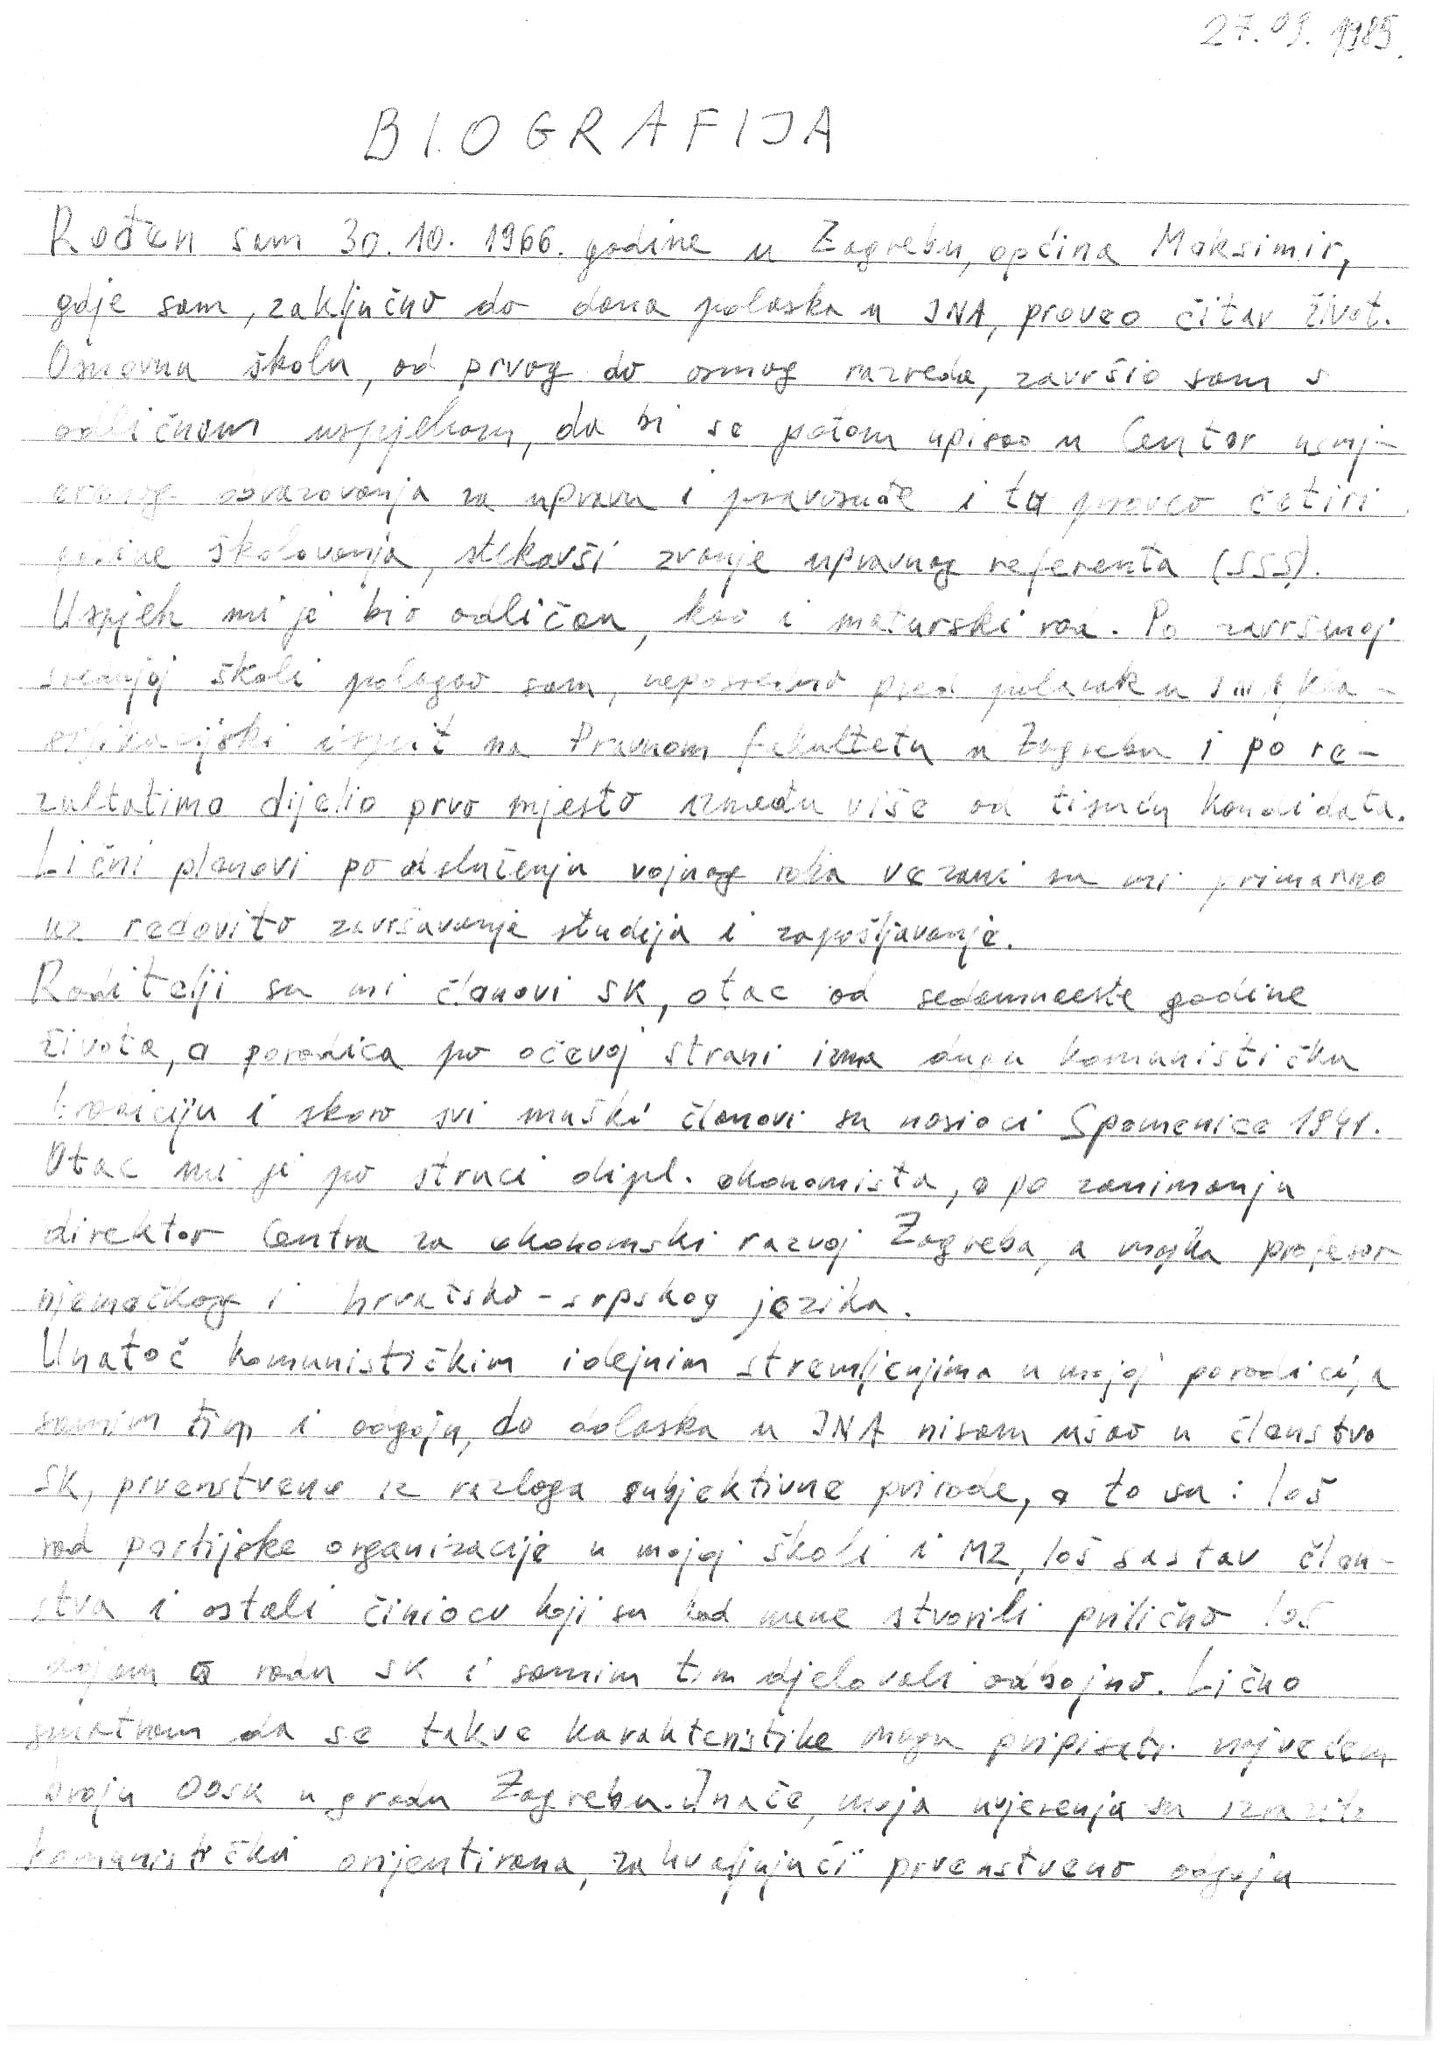 27.09.1985.
BIOGRAFIJA
Rođen sam 30.10.1966. godine u Zagrebu, općina Maksimir,
gdje sam, zaključno do dana polaska u JNA, proveo čitav život.
Osnovnu školu, od prvog do osmog razreda, završio sam s
odličnom uspjehom, da bi se potom upisao u Centar usmj-
erenog obrazovanja za upravu i pravosuđe i tu proveo četiri
godine školovanja, stekavši zvanje upravnog referenta (SSS).
Uspjeh mi je bio odličan, kao i maturski rad. Po završenoj
srednjoj školi polagao sam, neposredno pred polazak u JNA, kla-
sifikacijski ispit na Pravnom fakultetu u Zagrebu i po re-
zultatima dijelio prvo mjesto između više od tisuću kandidata.
Lični planovi po odsluženju vojnog roka vezani su mi primarno
uz redovito završavanje studija i zapošljavanje.
Roditelji su mi članovi SK, otac od sedamnaeste godine
života, a porodica po očevoj strani ima dugu komunističku
tradiciju i skoro svi muški članovi su nosioci Spomenice 1941.
Otac mi je po struci dipl. ekonomista, a po zanimanju
direktor Centra za ekonomski razvoj Zagreba, a majka profesor
njemačkog i hrvatsko-srpskog jezika.
Unatoč komunističkim idejnim stremljenjima u mojoj porodici, a
samim tim i odgoju, do dolaska u JNA nisam ušao u članstvo
SK, prvenstveno iz razloga subjektivne prirode, a to su: loš
rad partijske organizacije u mojoj školi i MZ, loš sastav član-
stva i ostali činiocu koji su kod mene stvorili prilično loš
dojam o radu SK i samim tim djelovali odbojno. Lično
smatram da se takve karakteristike mogu pripisati najvećem
broju OOSK u gradu Zagrebu. Inače, moja uvjerenja su izrazito
komunistički orijentirana, zahvaljujući prvenstveno odgoju